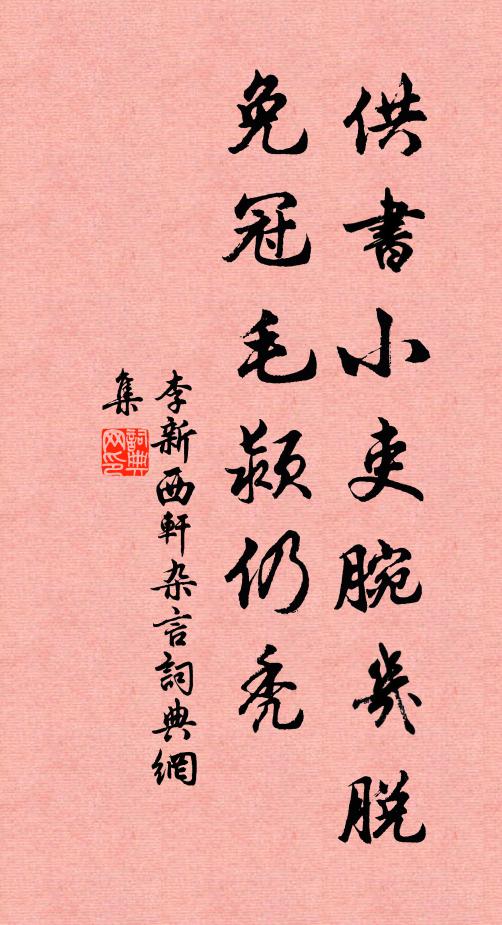 供書小吏腕幾脫
免冠毛穎仍禿
李新西軒杂言詞典網
集
詞典网印